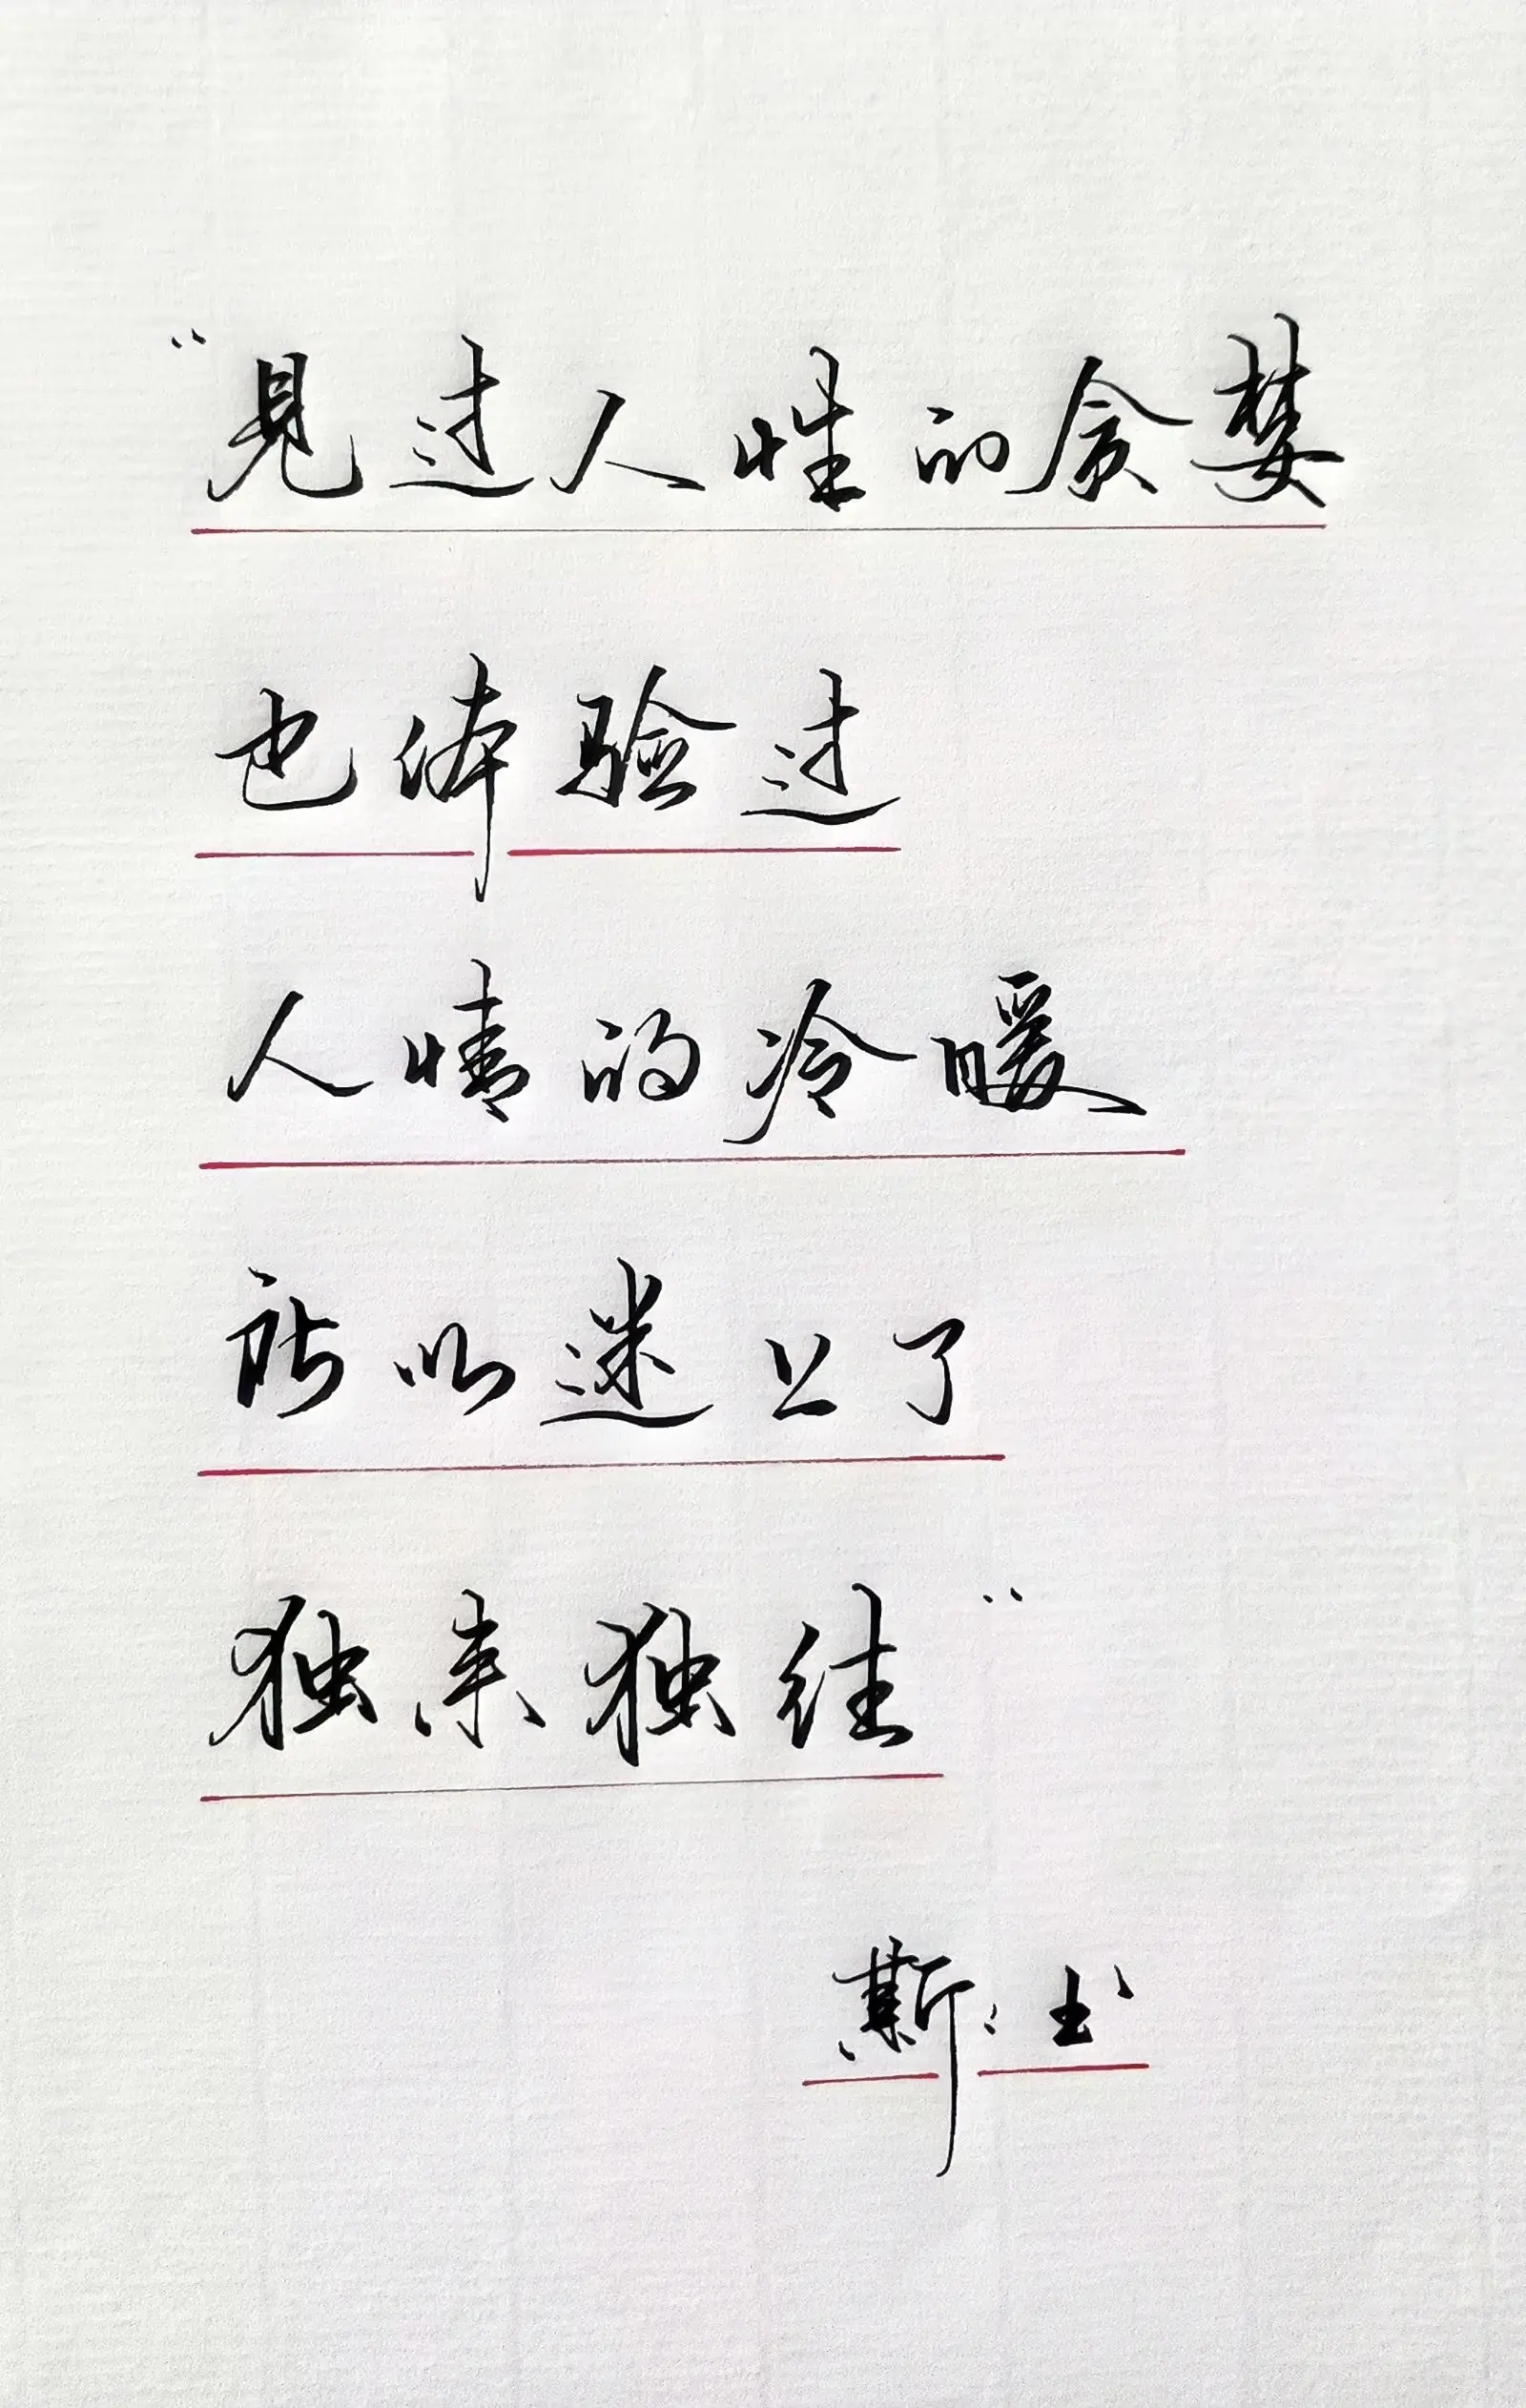 “见过人性的贪婪
也体验过
人情的冷暖
所以迷上了
独来独往”
斯：书